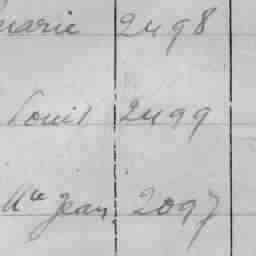 marie 2498
Louis 2499
Ve Jean 2097